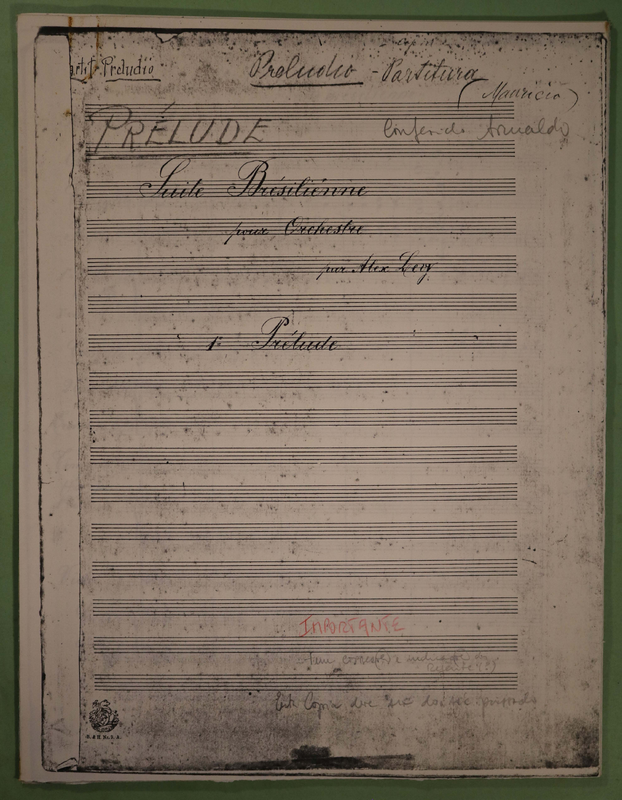 Partit. Preludio
Preludio - Partitura
(Mauricio)
PRÉLUDE
Conferido Arnaldo
Suite Brésiliénne
pour Orchestre
par Alex Levy
1º Prélude
IMPORTANTE
tem
Esta Copia deve